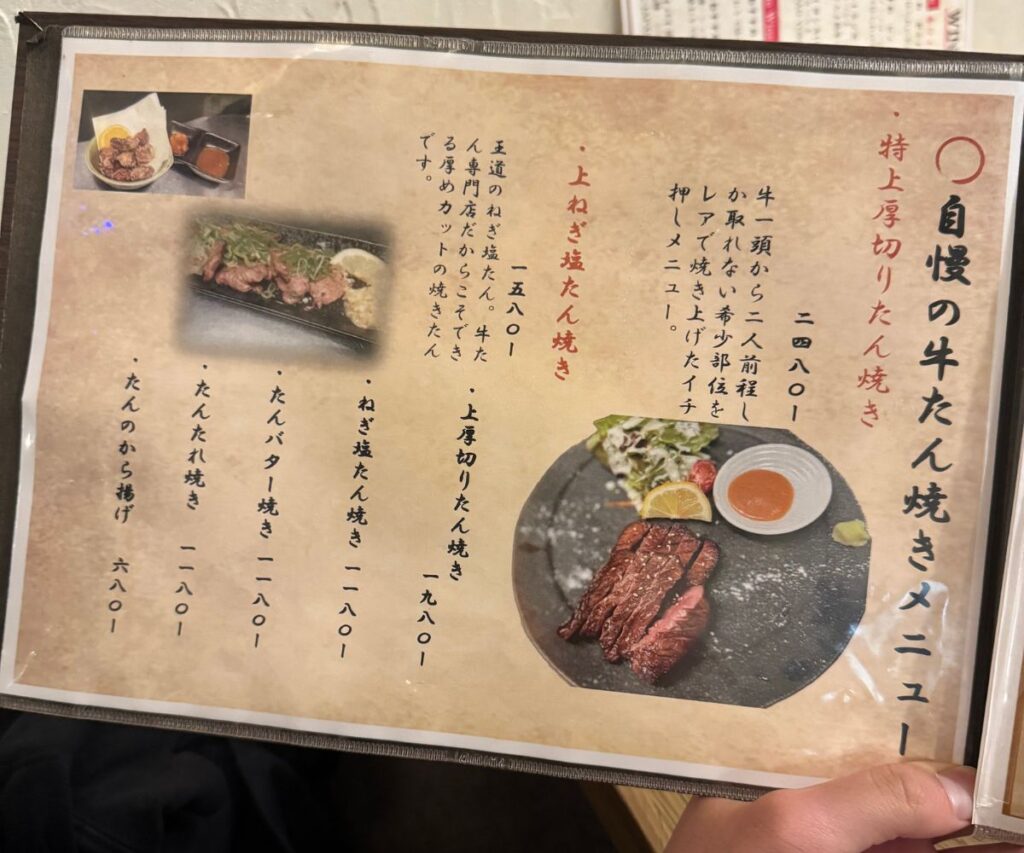 〇自慢の牛たん焼きメニュー
・特上厚切りたん焼き
二四八〇ー
牛一頭から二人前程し
か取れない希少部位を
レアで焼き上げたイチ
押しメニュー。
・上ねぎ塩たん焼き
一五八〇ー
王道のねぎ塩たん。牛た
ん専門店だからこそでき
る厚めカットの焼きたん
です。
・上厚切りたん焼き
一九八〇ー
・ねぎ塩たん焼き 一一八〇ー
・たんバター焼き 一一八〇ー
・たんたれ焼き 一一八〇ー
・たんのから揚げ 六八〇ー